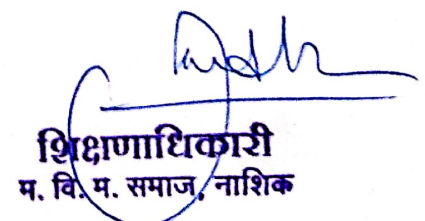 शिक्षणाधिकारी
म. वि. म. समाज, नाशिक